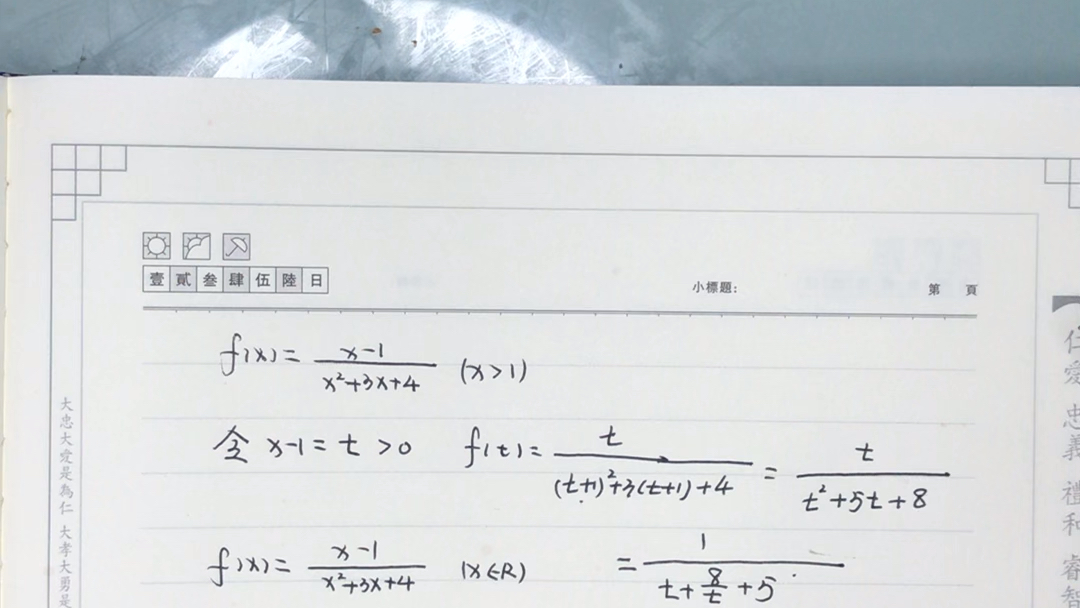 壹貳叁肆伍陸日
小標題： 第 頁
f(x) = \frac{x-1}{x^2+3x+4} (x>1)
令 x-1=t>0 f(t) = \frac{t}{(t+1)^2+3(t+1)+4} = \frac{t}{t^2+5t+8}
f(x) = \frac{x-1}{x^2+3x+4} (x∈R) = \frac{1}{t+\frac{8}{t}+5}
大忠大愛是為仁 大孝大勇是
仁愛 忠義 禮和 睿智